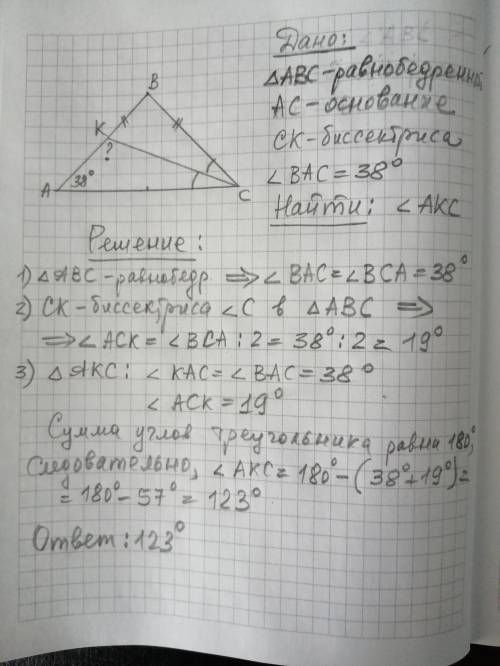 Дано:
△ABC-равнобедренный
AC-основание
CK-биссектриса
∠BAC=38°
Найти: ∠AKC
B
K
?
A
38°
C
Решение:
1) △ABC-равнобедр ⟹ ∠BAC=∠BCA=38°
2) CK-биссектриса ∠C в △ABC ⟹
⟹ ∠ACK=∠BCA:2=38°:2=19°
3) △AKC: ∠KAC=∠BAC=38°
∠ACK=19°
Сумма углов треугольника равна 180°,
следовательно, ∠AKC=180°-(38°+19°)=
=180°-57°=123°
Ответ:123°